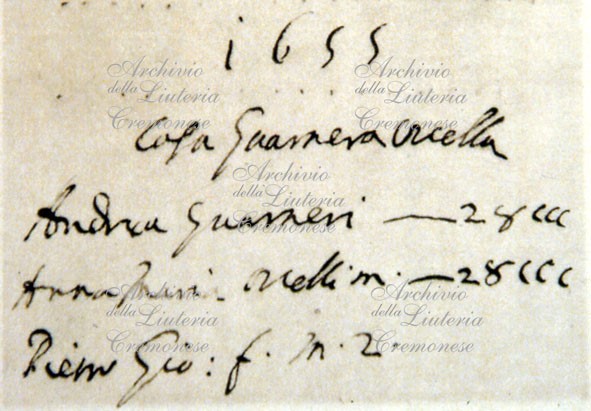 1655
Casa Guarnera Orcella
Andrea Guarneri — 28 CCC
Anna Mari. Orcelli m. — 28 CCC
Pietro Gio: f. m. 2.
Archivio
della
Liuteria
Cremonese
Archivio
della
Liuteria
Archivio
della
Liuteria
Cremonese
Archivio
della
Liuteria
Cremonese
Archivio
della
Liuteria
Cremonese